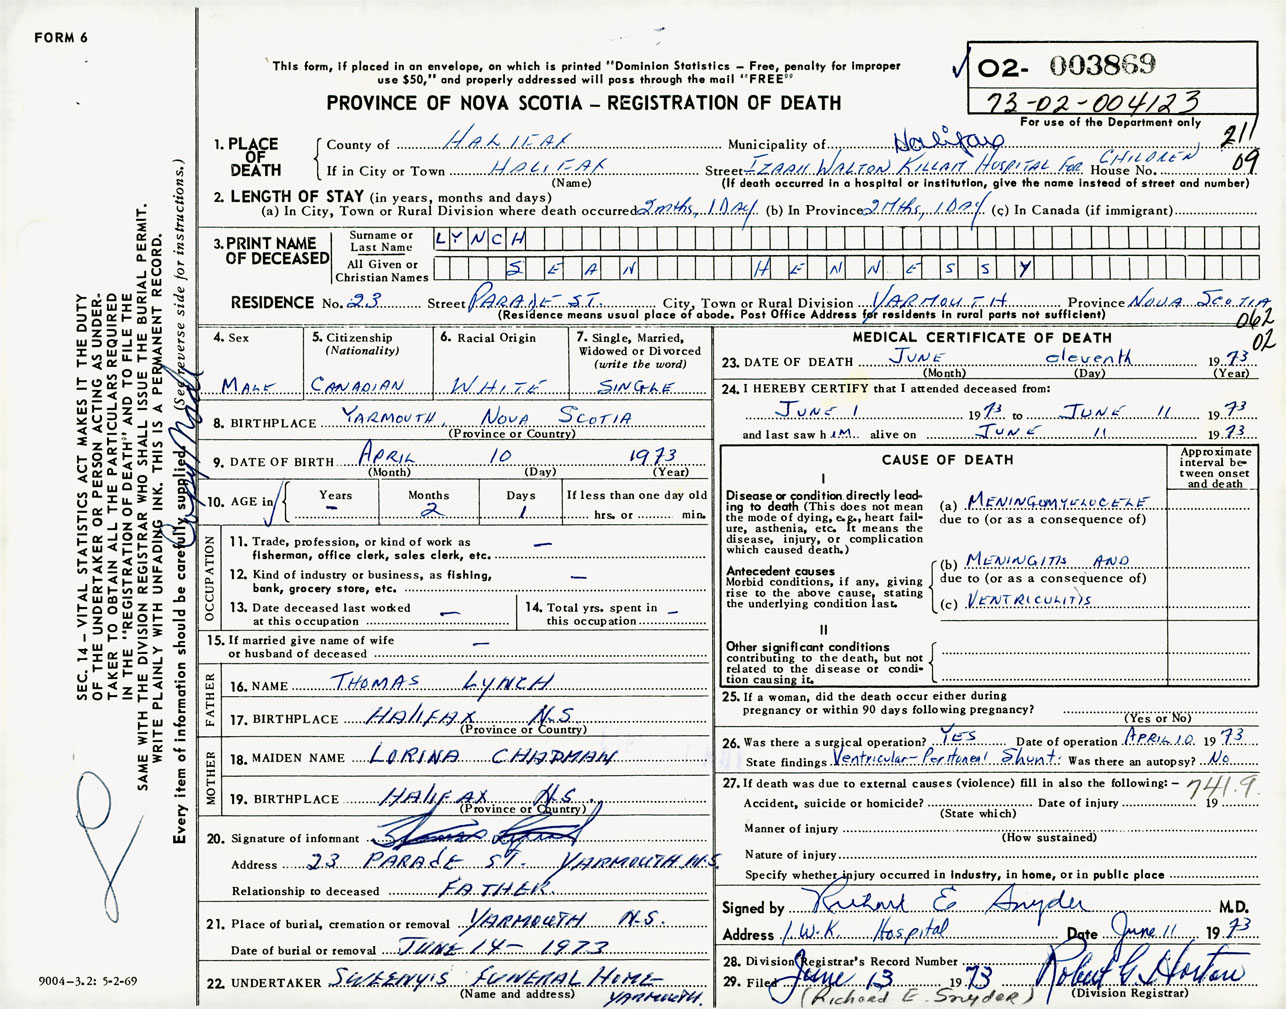 FORM 6
This form, if placed in an envelope, on which is printed "Dominion Statistics – Free, penalty for improper
use $50," and properly addressed will pass through the mail "FREE"
PROVINCE OF NOVA SCOTIA – REGISTRATION OF DEATH
O2- 003869
73-02-004123
For use of the Department only
211
09
1. PLACE OF DEATH
County of HALIFAX Municipality of Halifax
If in City or Town HALIFAX Street IZAAK WALTON KILLAM HOSPITAL FOR CHILDREN House No.
(Name) (If death occurred in a hospital or institution, give the name instead of street and number)
2. LENGTH OF STAY (in years, months and days)
(a) In City, Town or Rural Division where death occurred 2 mths, 1 DAY (b) In Province 2 Mths, 1 DAY (c) In Canada (if immigrant)
3. PRINT NAME OF DECEASED
Surname or Last Name LYNCH
All Given or Christian Names SEAN HENNESSY
RESIDENCE No. 23 Street PARADE ST. City, Town or Rural Division YARMOUTH Province NOVA SCOTIA
(Residence means usual place of abode. Post Office Address for residents in rural parts not sufficient)
062
02
4. Sex
MALE
5. Citizenship
(Nationality)
CANADIAN
6. Racial Origin
WHITE
7. Single, Married,
Widowed or Divorced
(write the word)
SINGLE
8. BIRTHPLACE YARMOUTH, NOVA SCOTIA
(Province or Country)
9. DATE OF BIRTH APRIL 10 1973
(Month) (Day) (Year)
10. AGE in Years Months Days If less than one day old
– 2 1 hrs. or min.
OCCUPATION
11. Trade, profession, or kind of work as
fisherman, office clerk, sales clerk, etc. —
12. Kind of industry or business, as fishing,
bank, grocery store, etc. —
13. Date deceased last worked
at this occupation —
14. Total yrs. spent in
this occupation –
15. If married give name of wife
or husband of deceased —
FATHER
16. NAME THOMAS LYNCH
17. BIRTHPLACE HALIFAX N.S.
(Province or Country)
MOTHER
18. MAIDEN NAME LORINA CHAPMAN
19. BIRTHPLACE HALIFAX N.S.
(Province or Country)
20. Signature of informant Thomas Lynch
Address 23 PARADE ST. YARMOUTH N.S.
Relationship to deceased FATHER
21. Place of burial, cremation or removal YARMOUTH N.S.
Date of burial or removal JUNE 14 – 1973
22. UNDERTAKER SWEENY'S FUNERAL HOME
(Name and address) YARMOUTH.
MEDICAL CERTIFICATE OF DEATH
23. DATE OF DEATH JUNE eleventh 1973
(Month) (Day) (Year)
24. I HEREBY CERTIFY that I attended deceased from:
JUNE 1 1973 to JUNE 11 1973
and last saw him alive on JUNE 11 1973
CAUSE OF DEATH
Approximate
interval be-
tween onset
and death
I
Disease or condition directly lead-
ing to death (This does not mean
the mode of dying, e.g., heart fail-
ure, asthenia, etc. It means the
disease, injury, or complication
which caused death.)
(a) MENINGOMYELOCELE
due to (or as a consequence of)
Antecedent causes
Morbid conditions, if any, giving
rise to the above cause, stating
the underlying condition last.
(b) MENINGITIS AND
due to (or as a consequence of)
(c) VENTRICULITIS
II
Other significant conditions
contributing to the death, but not
related to the disease or condi-
tion causing it.
25. If a woman, did the death occur either during
pregnancy or within 90 days following pregnancy?
(Yes or No)
26. Was there a surgical operation? YES Date of operation APRIL 10 1973
State findings Ventricular-Peritoneal Shunt. Was there an autopsy? No
27. If death was due to external causes (violence) fill in also the following: –
741.9
Accident, suicide or homicide? Date of injury 19
(State which)
Manner of injury
(How sustained)
Nature of injury
Specify whether injury occurred in industry, in home, or in public place
Signed by Richard E Snyder M.D.
Address I.W.K. Hospital Date June 11 1973
28. Division Registrar's Record Number
29. Filed June 13 1973 Robert G. Horton
(Richard E. Snyder) (Division Registrar)
SEC. 14 – VITAL STATISTICS ACT MAKES IT THE DUTY
OF THE UNDERTAKER OR PERSON ACTING AS UNDER-
TAKER TO OBTAIN ALL THE PARTICULARS REQUIRED
IN THE "REGISTRATION OF DEATH" AND TO FILE THE
SAME WITH THE DIVISION REGISTRAR WHO SHALL ISSUE THE BURIAL PERMIT.
WRITE PLAINLY WITH UNFADING INK. THIS IS A PERMANENT RECORD.
Every item of information should be carefully supplied. (See reverse side for instructions.)
Copy Made
9004–3.2: 5-2-69